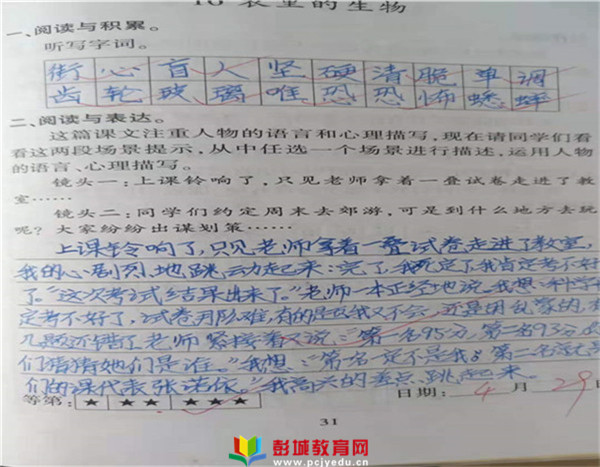 10 表里的生物
一、阅读与积累。
听写字词。
街 心 盲 人 坚 硬 清 脆 单 调
齿 轮 玻 璃 唯 恐 恐 怖 蟋 蟀
二、阅读与表达。
这篇课文注重人物的语言和心理描写,现在请同学们看
看这两段场景提示,从中任选一个场景进行描述,运用人物
的语言、心理描写。
镜头一:上课铃响了,只见老师拿着一叠试卷走进了教
室……
镜头二:同学们约定周末去郊游,可是到什么地方去玩
呢?大家纷纷出谋划策……
上课铃响了,只见老师拿着一叠试卷走进了教室,
我的心剧烈地跳动起来:完了,我死定了,我肯定考不好
了。“这次考试结果出来了。”老师一本正经地说,我想:科学
定考不好了,试卷那难,有的题我又不会,还是因乱蒙的,有
几题还错了老师紧接着又说:“第一名95分,第二名93分,
们猜猜她们是谁。”我想:“第一名一定不是我,第二名就
们的课代表张诺依。”我高兴的差点跳起来。
等第: ★ ★★ ★★★
日期: 4 月 29
31
彭城教育网
www.pcjyedu.cn